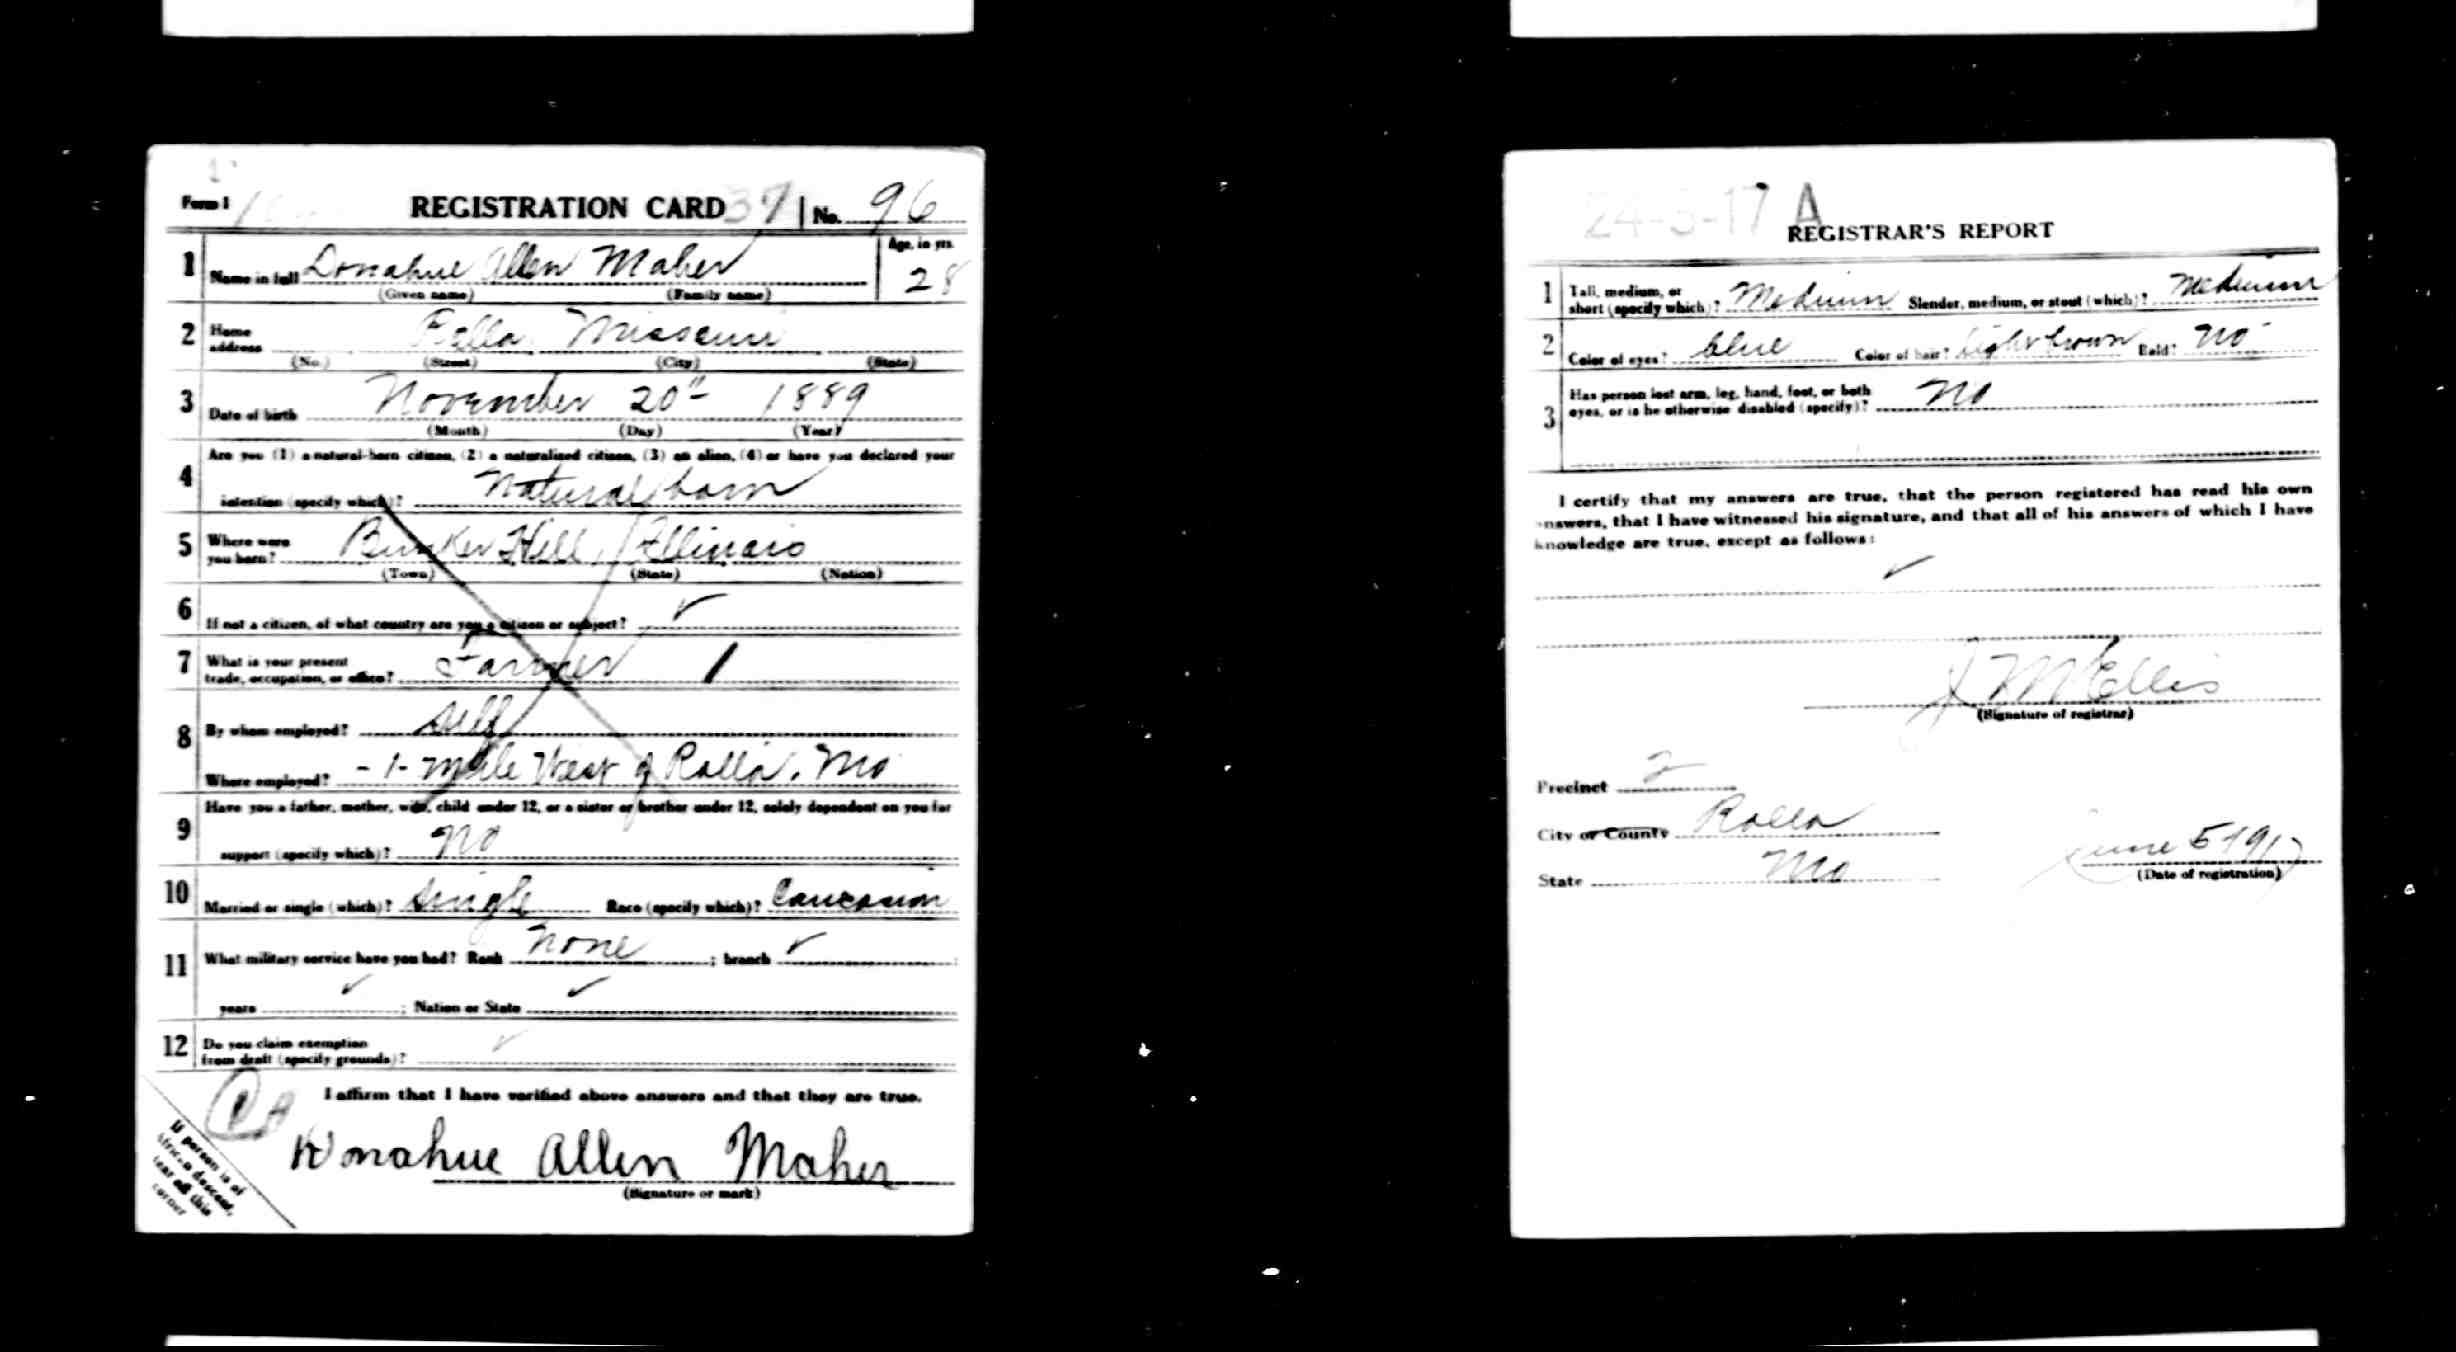 Form 1 REGISTRATION CARD 37 No. 96
1 Name in full Donahue Allen Maher Age, in yrs. 28
(Given name) (Family name)
2 Home address Rolla Missouri
(No.) (Street) (City) (State)
3 Date of birth November 20th 1889
(Month) (Day) (Year)
4 Are you (1) a natural-born citizen, (2) a naturalized citizen, (3) an alien, (4) or have you declared your
intention (specify which)? Natural born
5 Where were you born? Bunker Hill, Illinois
(Town) (State) (Nation)
6 If not a citizen, of what country are you a citizen or subject? ✓
7 What is your present trade, occupation, or office? Farmer 1
8 By whom employed? Self
Where employed? - 1 - Mile West of Rolla, Mo
9 Have you a father, mother, wife, child under 12, or a sister or brother under 12, solely dependent on you for
support (specify which)? No
10 Married or single (which)? Single Race (specify which)? Caucasian
11 What military service have you had? Rank None ; branch ✓
years ✓ ; Nation or State ✓
12 Do you claim exemption from draft (specify grounds)? ✓
I affirm that I have verified above answers and that they are true.
Donahue Allen Maher
(Signature or mark)
If person is of
African descent,
tear off this
corner
24-3-17 A
REGISTRAR'S REPORT
1 Tall, medium, or short (specify which)? Medium Slender, medium, or stout (which)? Medium
2 Color of eyes? blue Color of hair? Light brown Bald? No
3 Has person lost arm, leg, hand, foot, or both
eyes, or is he otherwise disabled (specify)? No
I certify that my answers are true, that the person registered has read his own
answers, that I have witnessed his signature, and that all of his answers of which I have
knowledge are true, except as follows:
✓
J M Ellis
(Signature of registrar)
Precinct 2
City or County Rolla
State Mo
June 5 1917
(Date of registration)